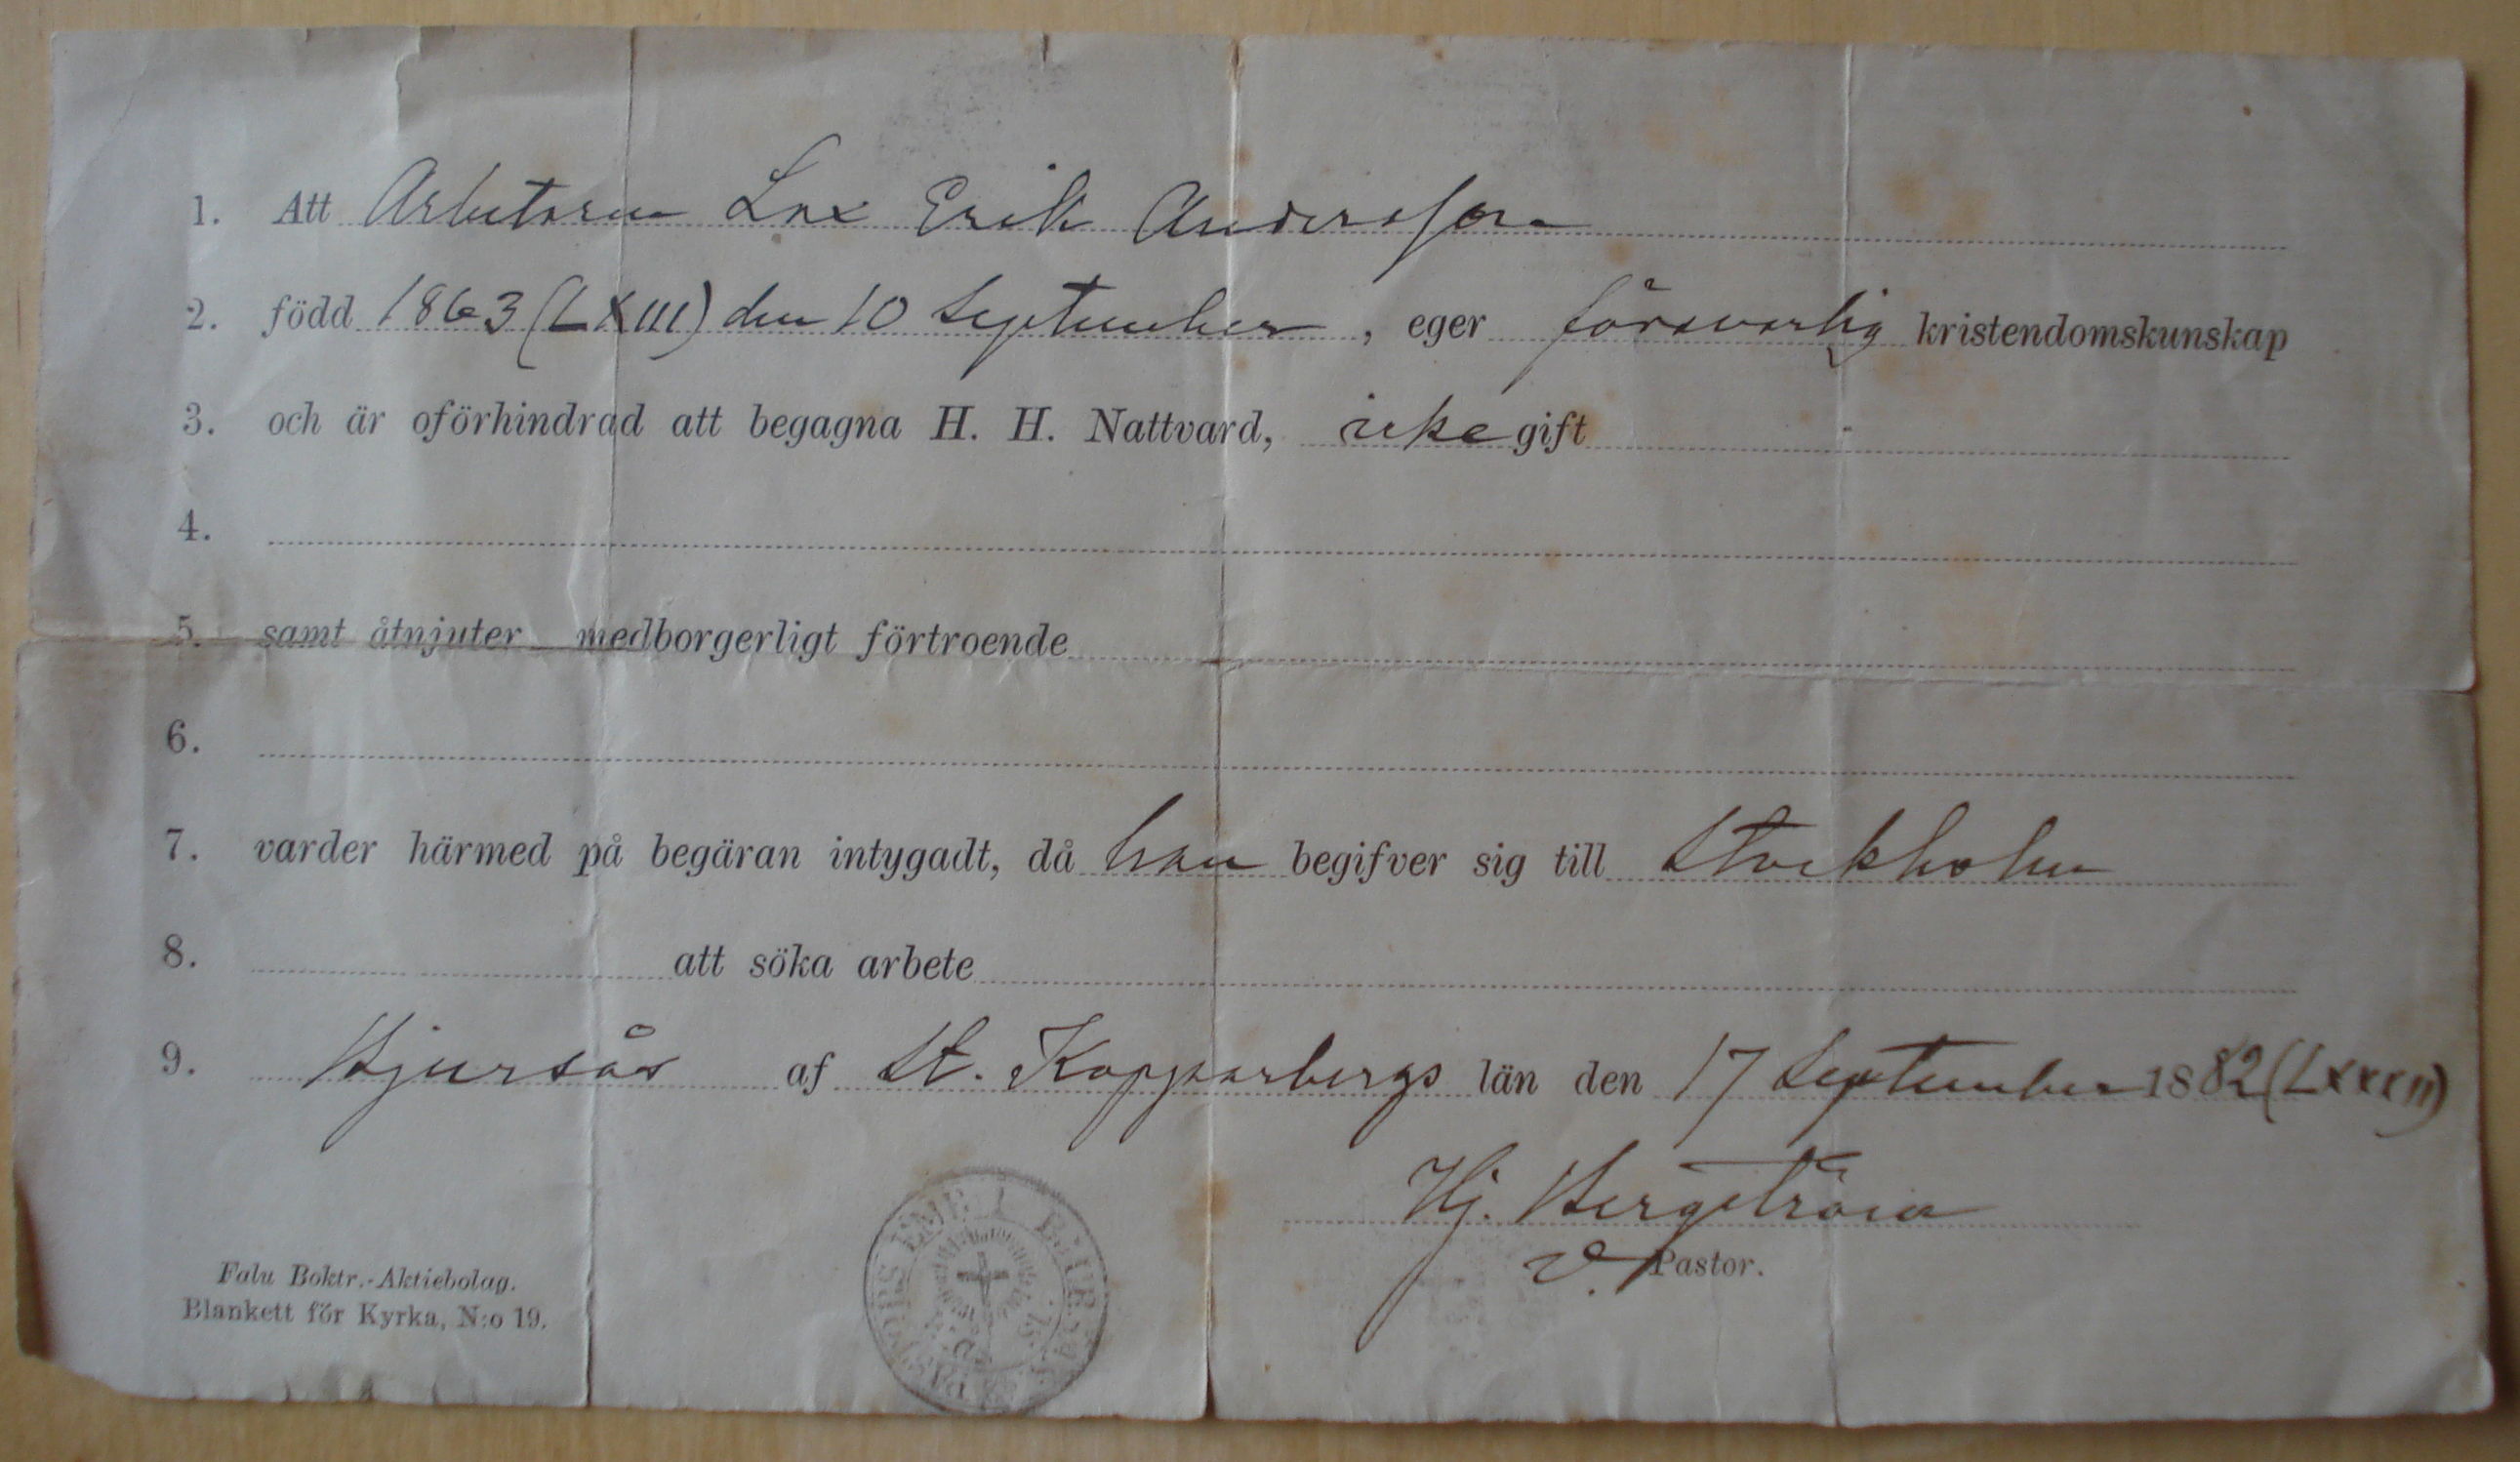 1. Att Arbetaren Lax Erik Andersson
2. född 1863 (LXIII) den 10 September, eger försvarlig kristendomskunskap
3. och är oförhindrad att begagna H. H. Nattvard, icke gift
4.
5. samt åtnjuter medborgerligt förtroende
6.
7. varder härmed på begäran intygadt, då han begifver sig till Stockholm
8. att söka arbete
9. Bjursås af St. Kopparbergs län den 17 September 1882 (LXXXII)
Hj. Bergström
v. Pastor.
Falu Boktr.-Aktiebolag.
Blankett för Kyrka, N:o 19.
PASTORS EMB. I BJURSÅS